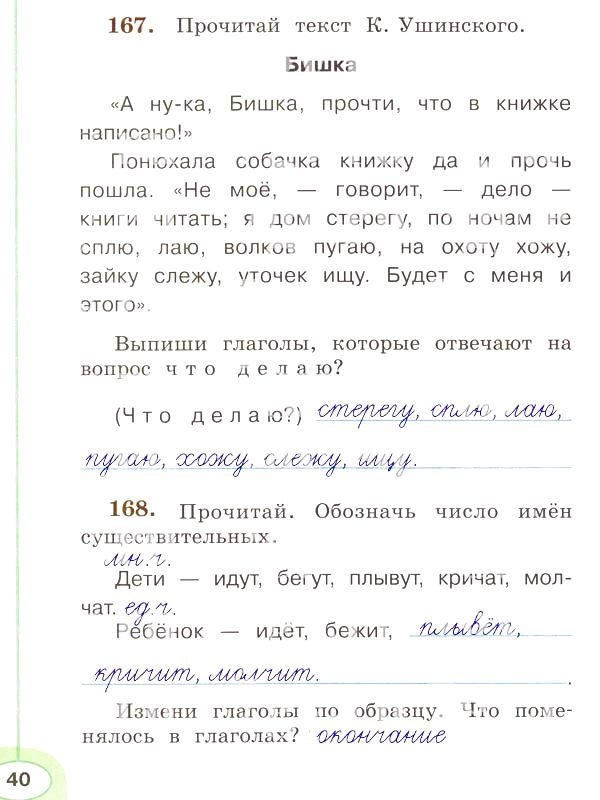 167. Прочитай текст К. Ушинского.
Бишка
«А ну-ка, Бишка, прочти, что в книжке
написано!»
Понюхала собачка книжку да и прочь
пошла. «Не моё, — говорит, — дело —
книги читать; я дом стерегу, по ночам не
сплю, лаю, волков пугаю, на охоту хожу,
зайку слежу, уточек ищу. Будет с меня и
этого».
Выпиши глаголы, которые отвечают на
вопрос что делаю?
(Что делаю?) стерегу, сплю, лаю,
пугаю, хожу, слежу, ищу.
168. Прочитай. Обозначь число имён
существительных.
мн.ч.
Дети — идут, бегут, плывут, кричат, мол-
чат. ед.ч.
Ребёнок — идёт, бежит, плывёт,
кричит, молчит. .
Измени глаголы по образцу. Что поме-
нялось в глаголах? окончание
40